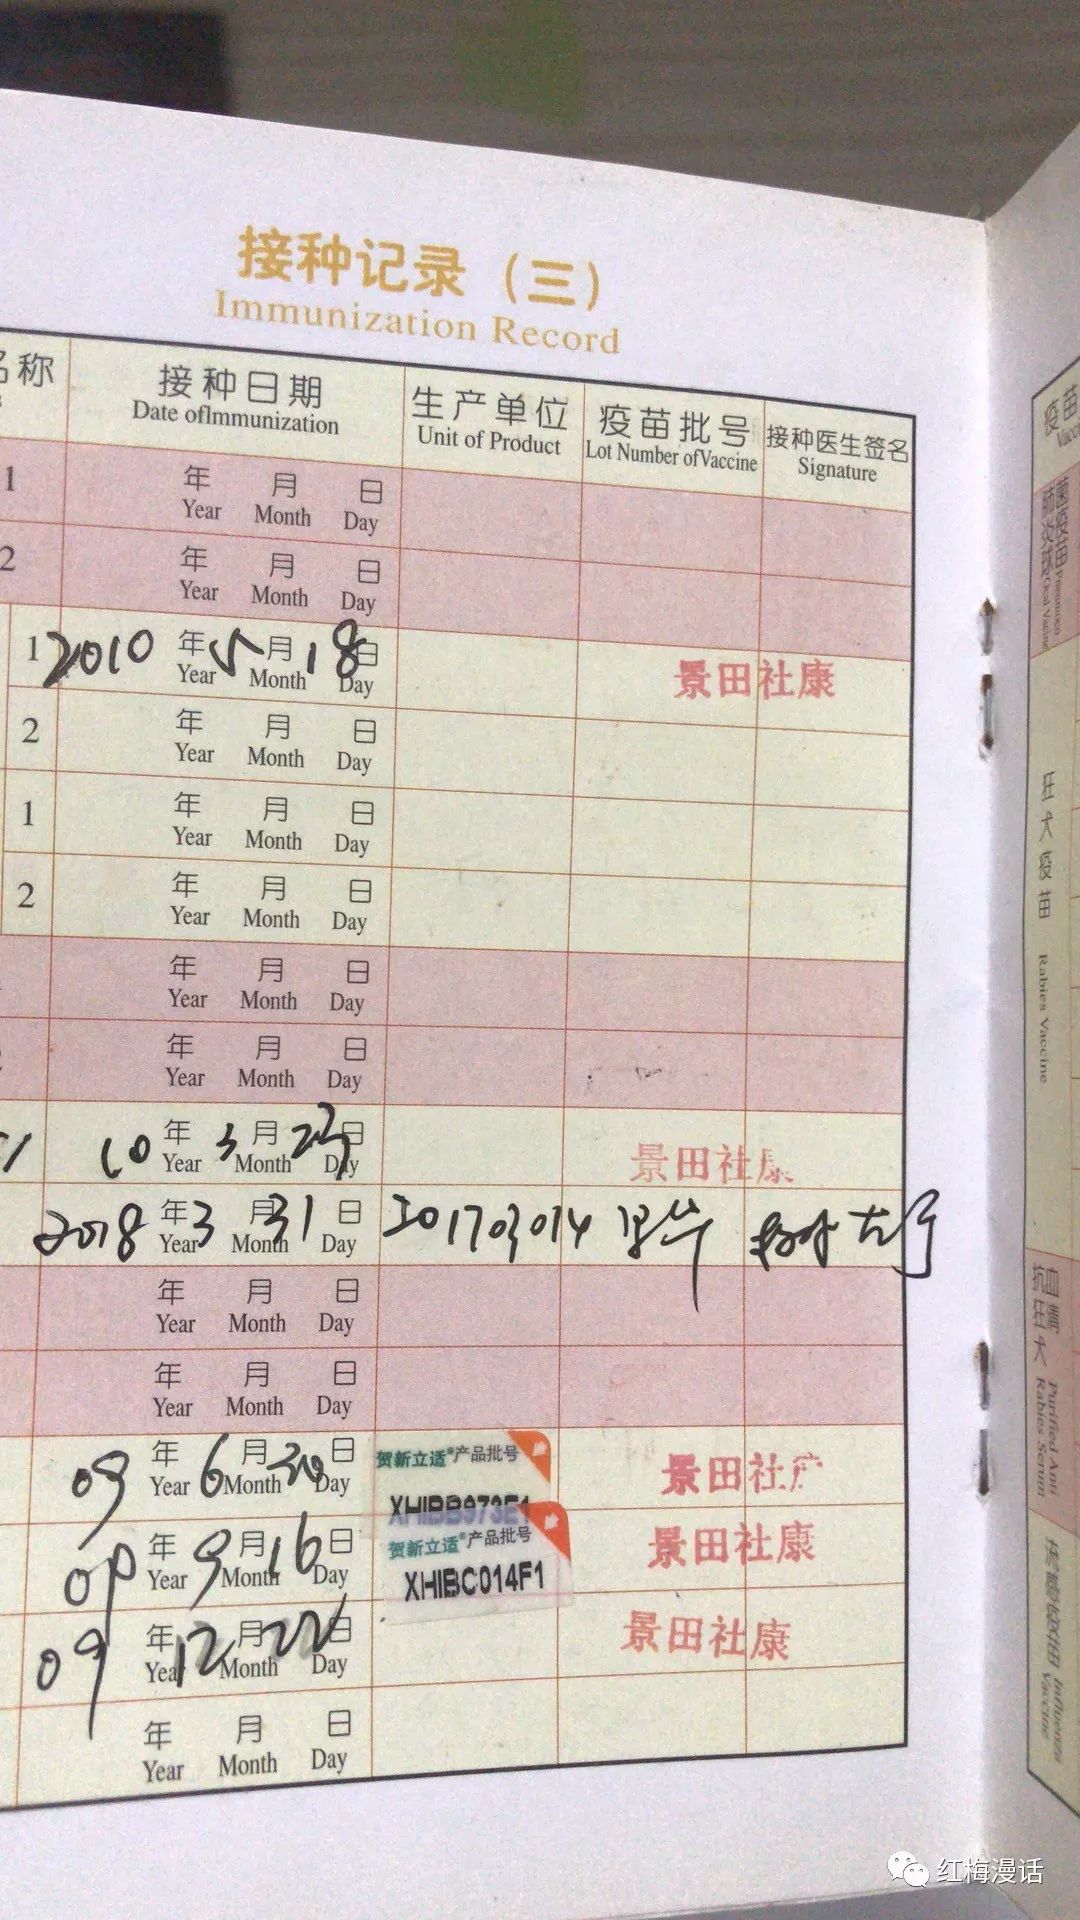 接种记录（三）
Immunization Record
名称 接种日期 生产单位 疫苗批号 接种医生签名
Date ofImmunization Unit of Product Lot Number ofVaccine Signature
1 年 月 日
Year Month Day
2 年 月 日
Year Month Day
1 2010 年 5 月 18 日 景田社康
Year Month Day
2 年 月 日
Year Month Day
1 年 月 日
Year Month Day
2 年 月 日
Year Month Day
年 月 日
Year Month Day
年 月 日
Year Month Day
10 年 3 月 23 日 景田社康
Year Month Day
2018 年 3 月 31 日 201703014
Year Month Day
年 月 日
Year Month Day
年 月 日
Year Month Day
09 年 6 月 日 贺新立适®产品批号 景田社
Year Month Day XHIBB973E1
09 年 9 月 16 日 贺新立适®产品批号 景田社康
Year Month Day XHIBC014F1
09 年 12 月 22 日 景田社康
Year Month Day
年 月 日
Year Month Day
疫苗
肺炎球菌疫苗
狂犬疫苗 Rabies Vaccine
抗狂犬血清 Purified Anti Rabies Serum
Influenza Vaccine
红梅漫话